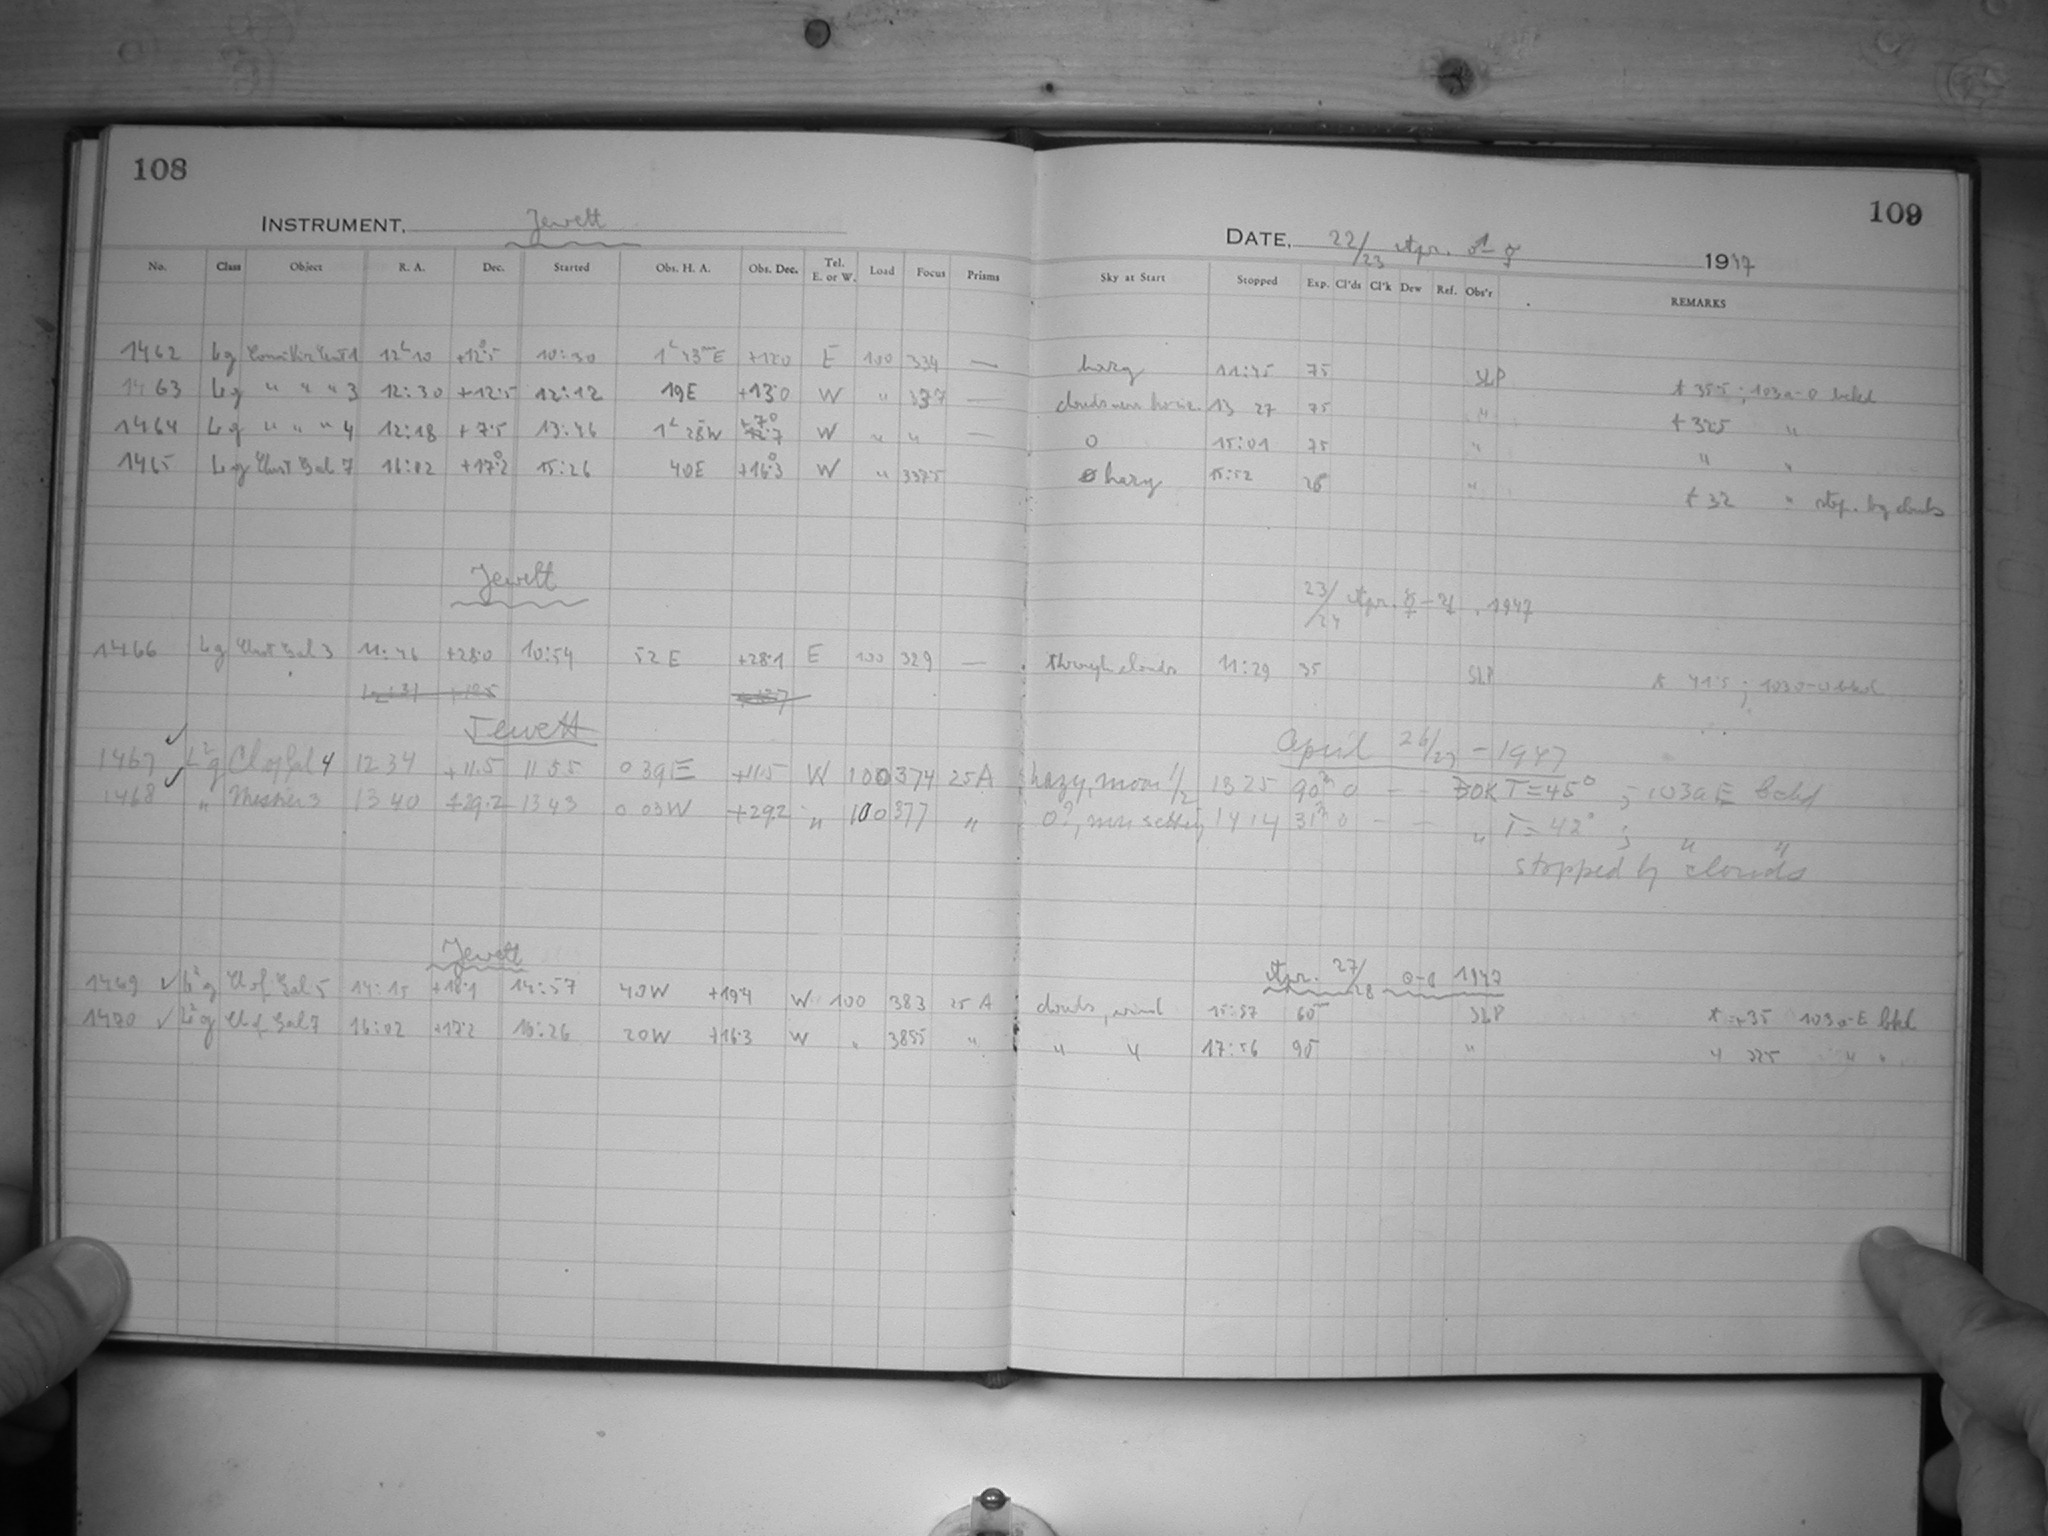 108
INSTRUMENT. Jewett
No. Class Object R. A. Dec. Started Obs. H. A. Obs. Dec. Tel. E. or W. Load Focus Prisms
1462 Lg 12h10 +12°5 10:30 1h 23m E +12.0 E 100 334 —
1463 Lg " " " 3 12:30 +12.5 12:12 19E +13.0 W " 337 —
1464 Lg " " " 4 12:18 +7.5 13:46 1h 28W +7.0 W " " —
1465 Lg Clust Gal 7 16:02 +17°2 15:26 40E +16°3 W " 337.5
Jewett
1466 Lg Clust Gal 3 11:46 +28.0 10:54 52 E +28.1 E 100 329 —
Jewett
1467 L²g Cl of Gal 4 12 34 +11.5 11 55 0 39E +11.5 W 100 374 25A
1468 " Messier 3 13 40 +29.2 13 43 0 03W +29.2 " 100 377 "
Jewett
1469 L²g Cl of Gal 5 14:15 +18.1 14:57 40W +19.4 W 100 383 25 A
1470 L²g Cl of Gal 7 16:02 +17.2 16:26 20W +16.3 W " 385.5 "
109
DATE, 22/23 Apr. ♂-☿ 1947
Sky at Start Stopped Exp. Cl'ds Cl'k Dew Ref. Obs'r REMARKS
hazy 11:45 75 SLP t 35.5; 103a-O bckd
clouds near horiz. 13 27 75 " t 32.5 "
0 15:01 75 " " "
hazy 15:52 26 " t 32 " stop. by clouds
23/24 Apr. ☿-♃, 1947
through clouds 11:29 35 SLP t 41.5; 103a-O bckd
April 26/27 - 1947
hazy, moon 1/2 13 25 90m 0 — — BOK T=45°; 103a E bckd
0?, moon setting 14 14 31m 0 — — " T=42°; " "
stopped by clouds
Apr. 27/28 1947
clouds, wind 15:57 60m SLP t +35 103a-E bkd
" " 17:56 90 " " "